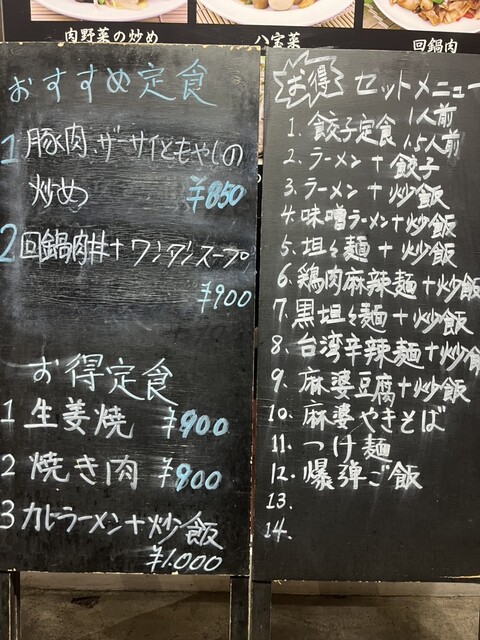 肉野菜の炒め
八宝菜
回鍋肉
おすすめ定食
1 豚肉、ザーサイともやしの
炒め ¥850
2 回鍋肉丼+ワンタンスープ
¥900
お得定食
1 生姜焼 ¥900
2 焼き肉 ¥900
3 カレーラーメン+炒飯
¥1.000
お得 セットメニュー
1. 餃子定食 1人前
1.5人前
2. ラーメン+餃子
3. ラーメン+炒飯
4. 味噌ラーメン+炒飯
5. 坦々麺+炒飯
6. 鶏肉麻辣麺+炒飯
7. 黒坦々麺+炒飯
8. 台湾辛辣麺+炒飯
9. 麻婆豆腐+炒飯
10. 麻婆やきそば
11. つけ麺
12. 爆弾ご飯
13.
14.